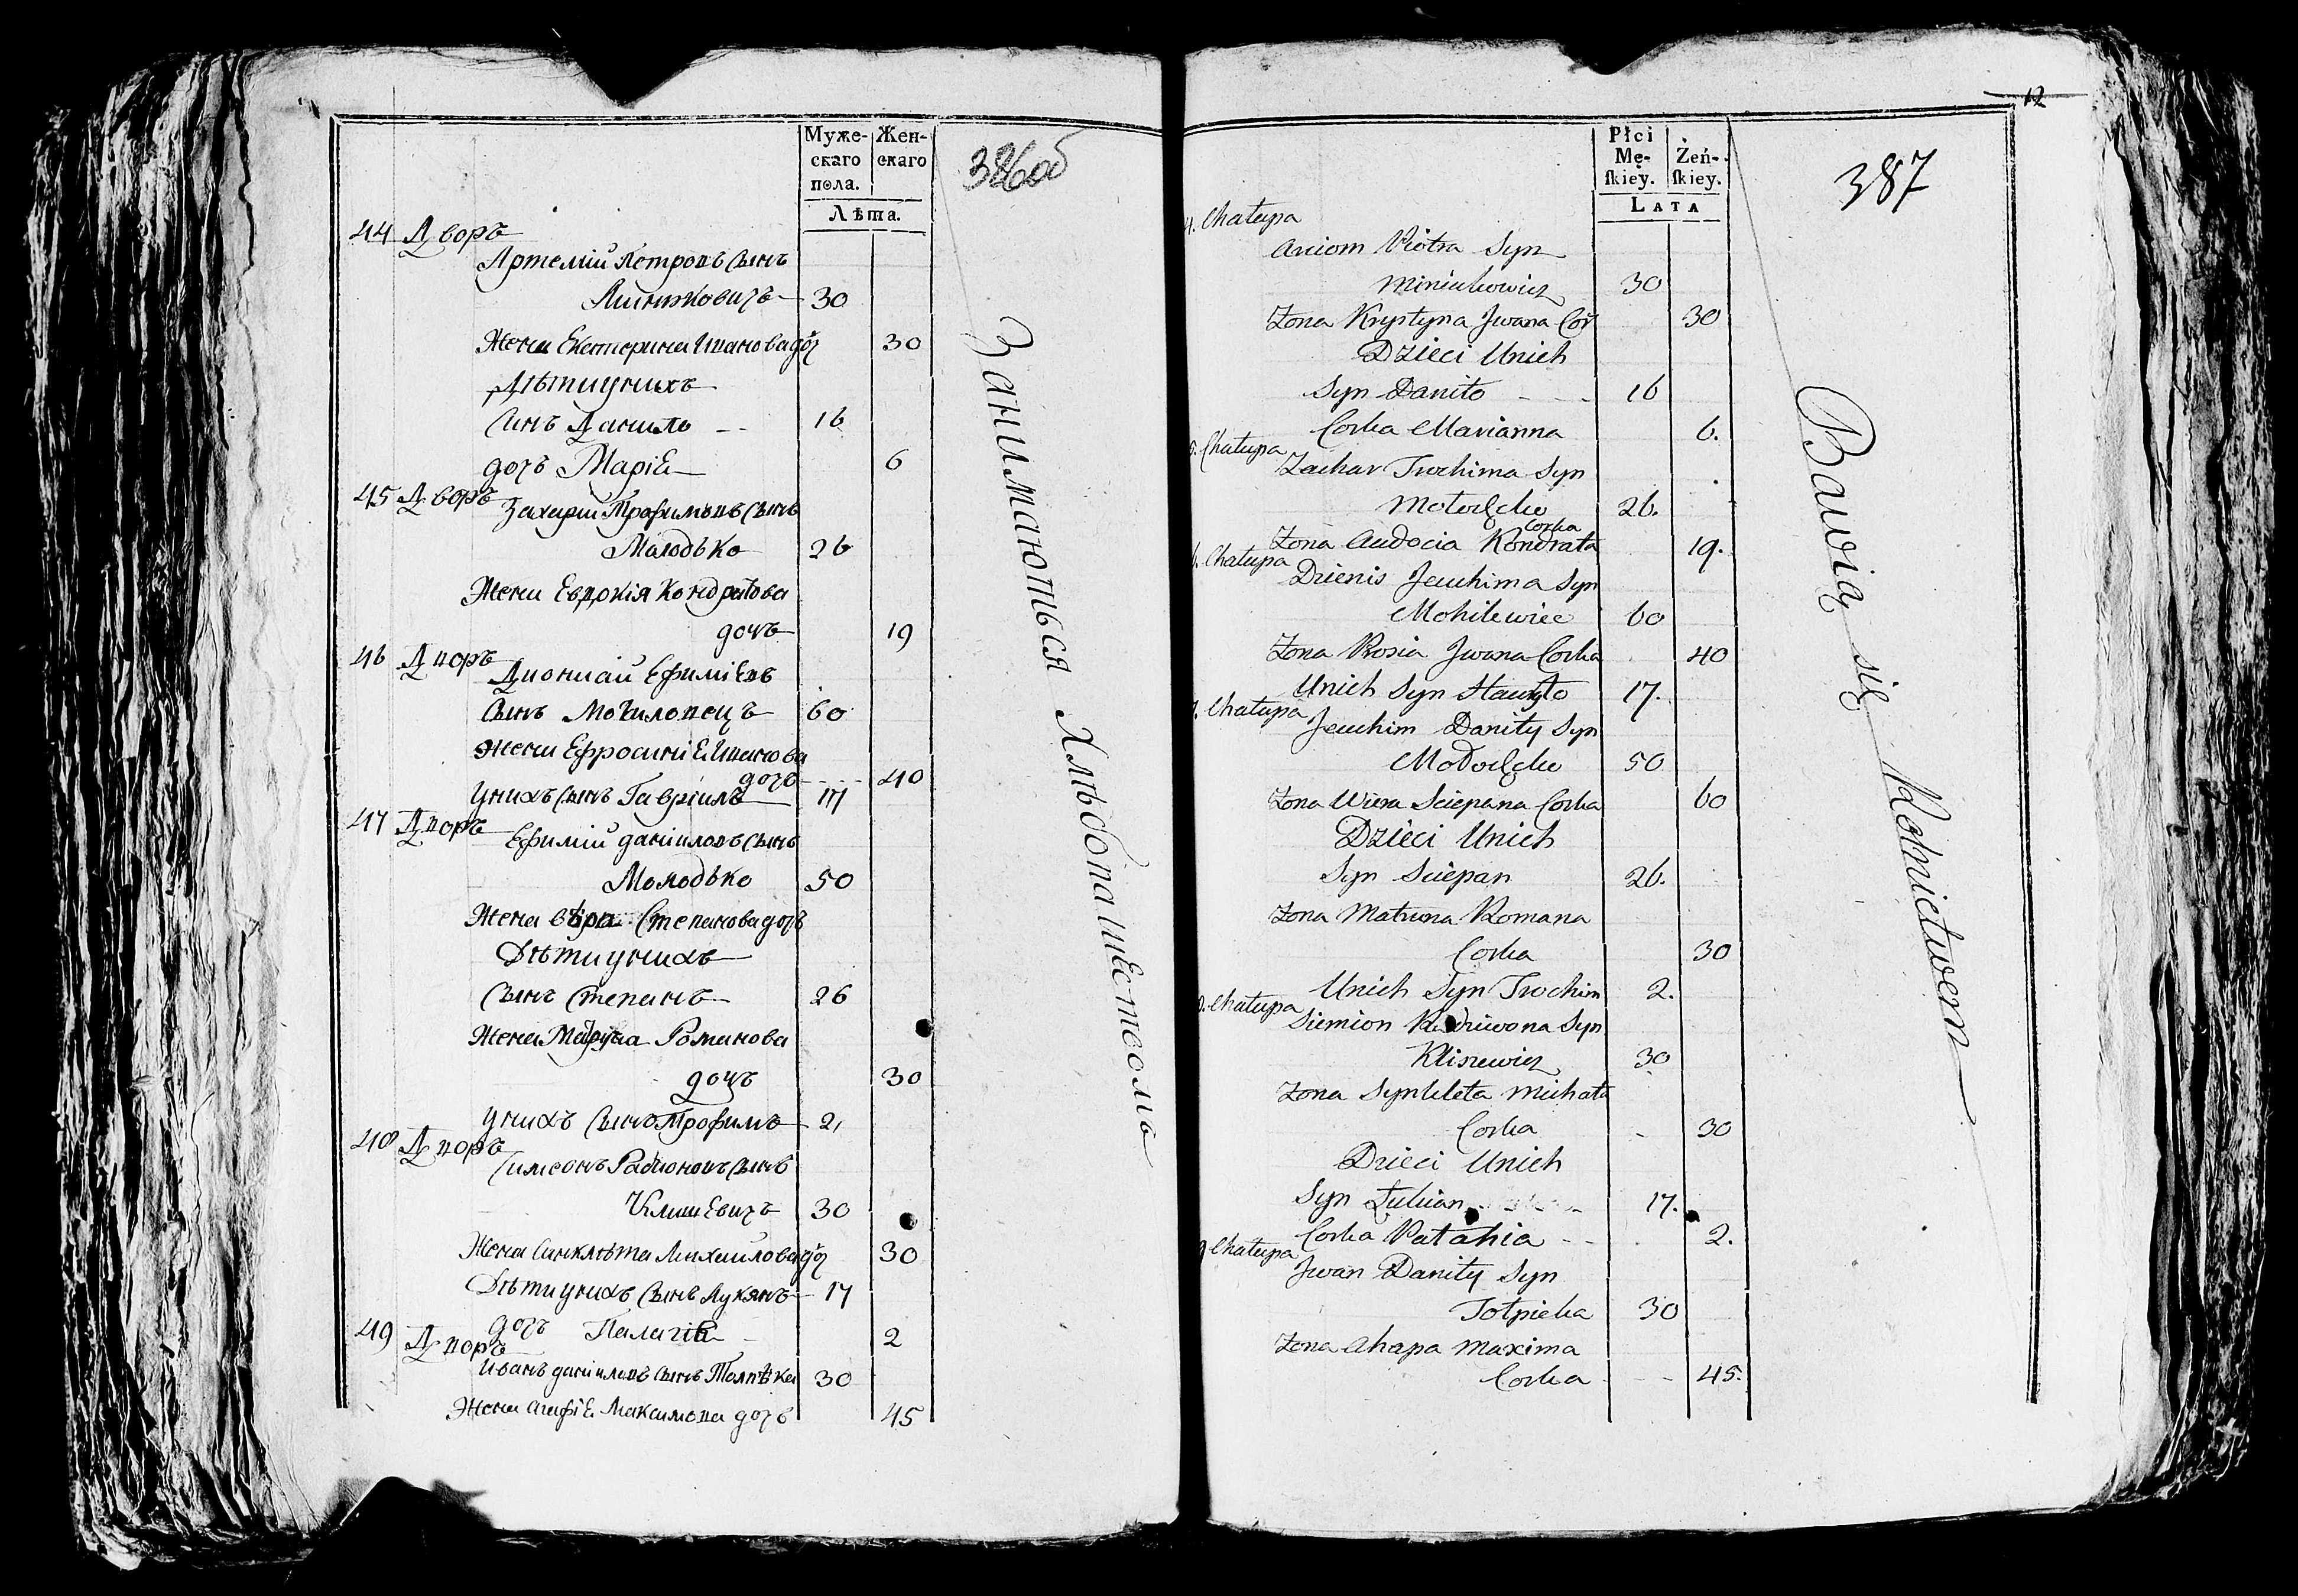 Муже-
скаго
пола.
Жен-
скаго
Лѣта.
386об
44 Дворъ
Артемій Петровъ сынъ
30
Жена Екатерина Иванова доч 30
Дѣти у нихъ
Сынъ Данило -- 16
дочь Маріе 6
45 Дворъ
Захарій Трофимовъ сынъ
Молодько 26
Жена Евдокія Кондратова
дочь 19
46 Дворъ
Дионисій Ефиміевъ
сынъ Могиловецъ 60
Жена Ефросиніе Иванова
дочь ---- 40
У нихъ сынъ Гавріилъ 17
47 Дворъ
Ефимій Даніиловъ сынъ
Молодько 50
Жена Вѣра Степанова дочь
Дѣти у нихъ
Сынъ Степанъ 26
Жена Романова
дочь 30
У нихъ сынъ Трофимъ 2,
48 Дворъ
Симеонъ Радионовъ сынъ
Клишевичъ 30
Жена Синклѣта Михаилова доч 30
Дѣти у нихъ сынъ Лукянъ 17
дочь Палагіе 2
49 Дворъ
Иванъ Даніиловъ сынъ Толпѣка 30
Жена Агафіе Максимова дочь 45
Занимаються Хлѣбопашествомъ
12
Płci
Mę-
ſkiey.
Żeń-
ſkiey.
LATA
387
4. Chałupa
Arciom Piotra Syn
Miniukowicz 30
Żona Krystyna Jwana Cor 30
Dzieci Unich
Syn Daniło - - - 16
Corka Marianna 6.
5. Chałupa
Zachar Trochima Syn
Mołodźko 26.
Żona Audocia Kondrata Corka 19.
6. Chałupa
Dzienis Jeuchima Syn
Mohilewiec 60
Żona Prosia Jwana Corka 40
Unich Syn Hauryło 17.
7. Chałupa
Jeuchim Daniły Syn
Mołodźko 50
Żona Wiera Sciepana Corka 60
Dzieci Unich
Syn Sciepan 26.
Żona Matruna Romana
Corka 30
Unich Syn Trochim 2.
8. Chałupa
Siemion Rodziwona Syn
Kliszewicz 30
Żona Synkleta Michała
Corka - 30
Dzieci Unich
Syn Łukian 17.
Corka Pałahia -- 2.
9 Chałupa
Jwan Daniły Syn
Tołpieka 30
Żona Ahapa Maxima
Corka - - - 45.
Bawią się Rolnictwem